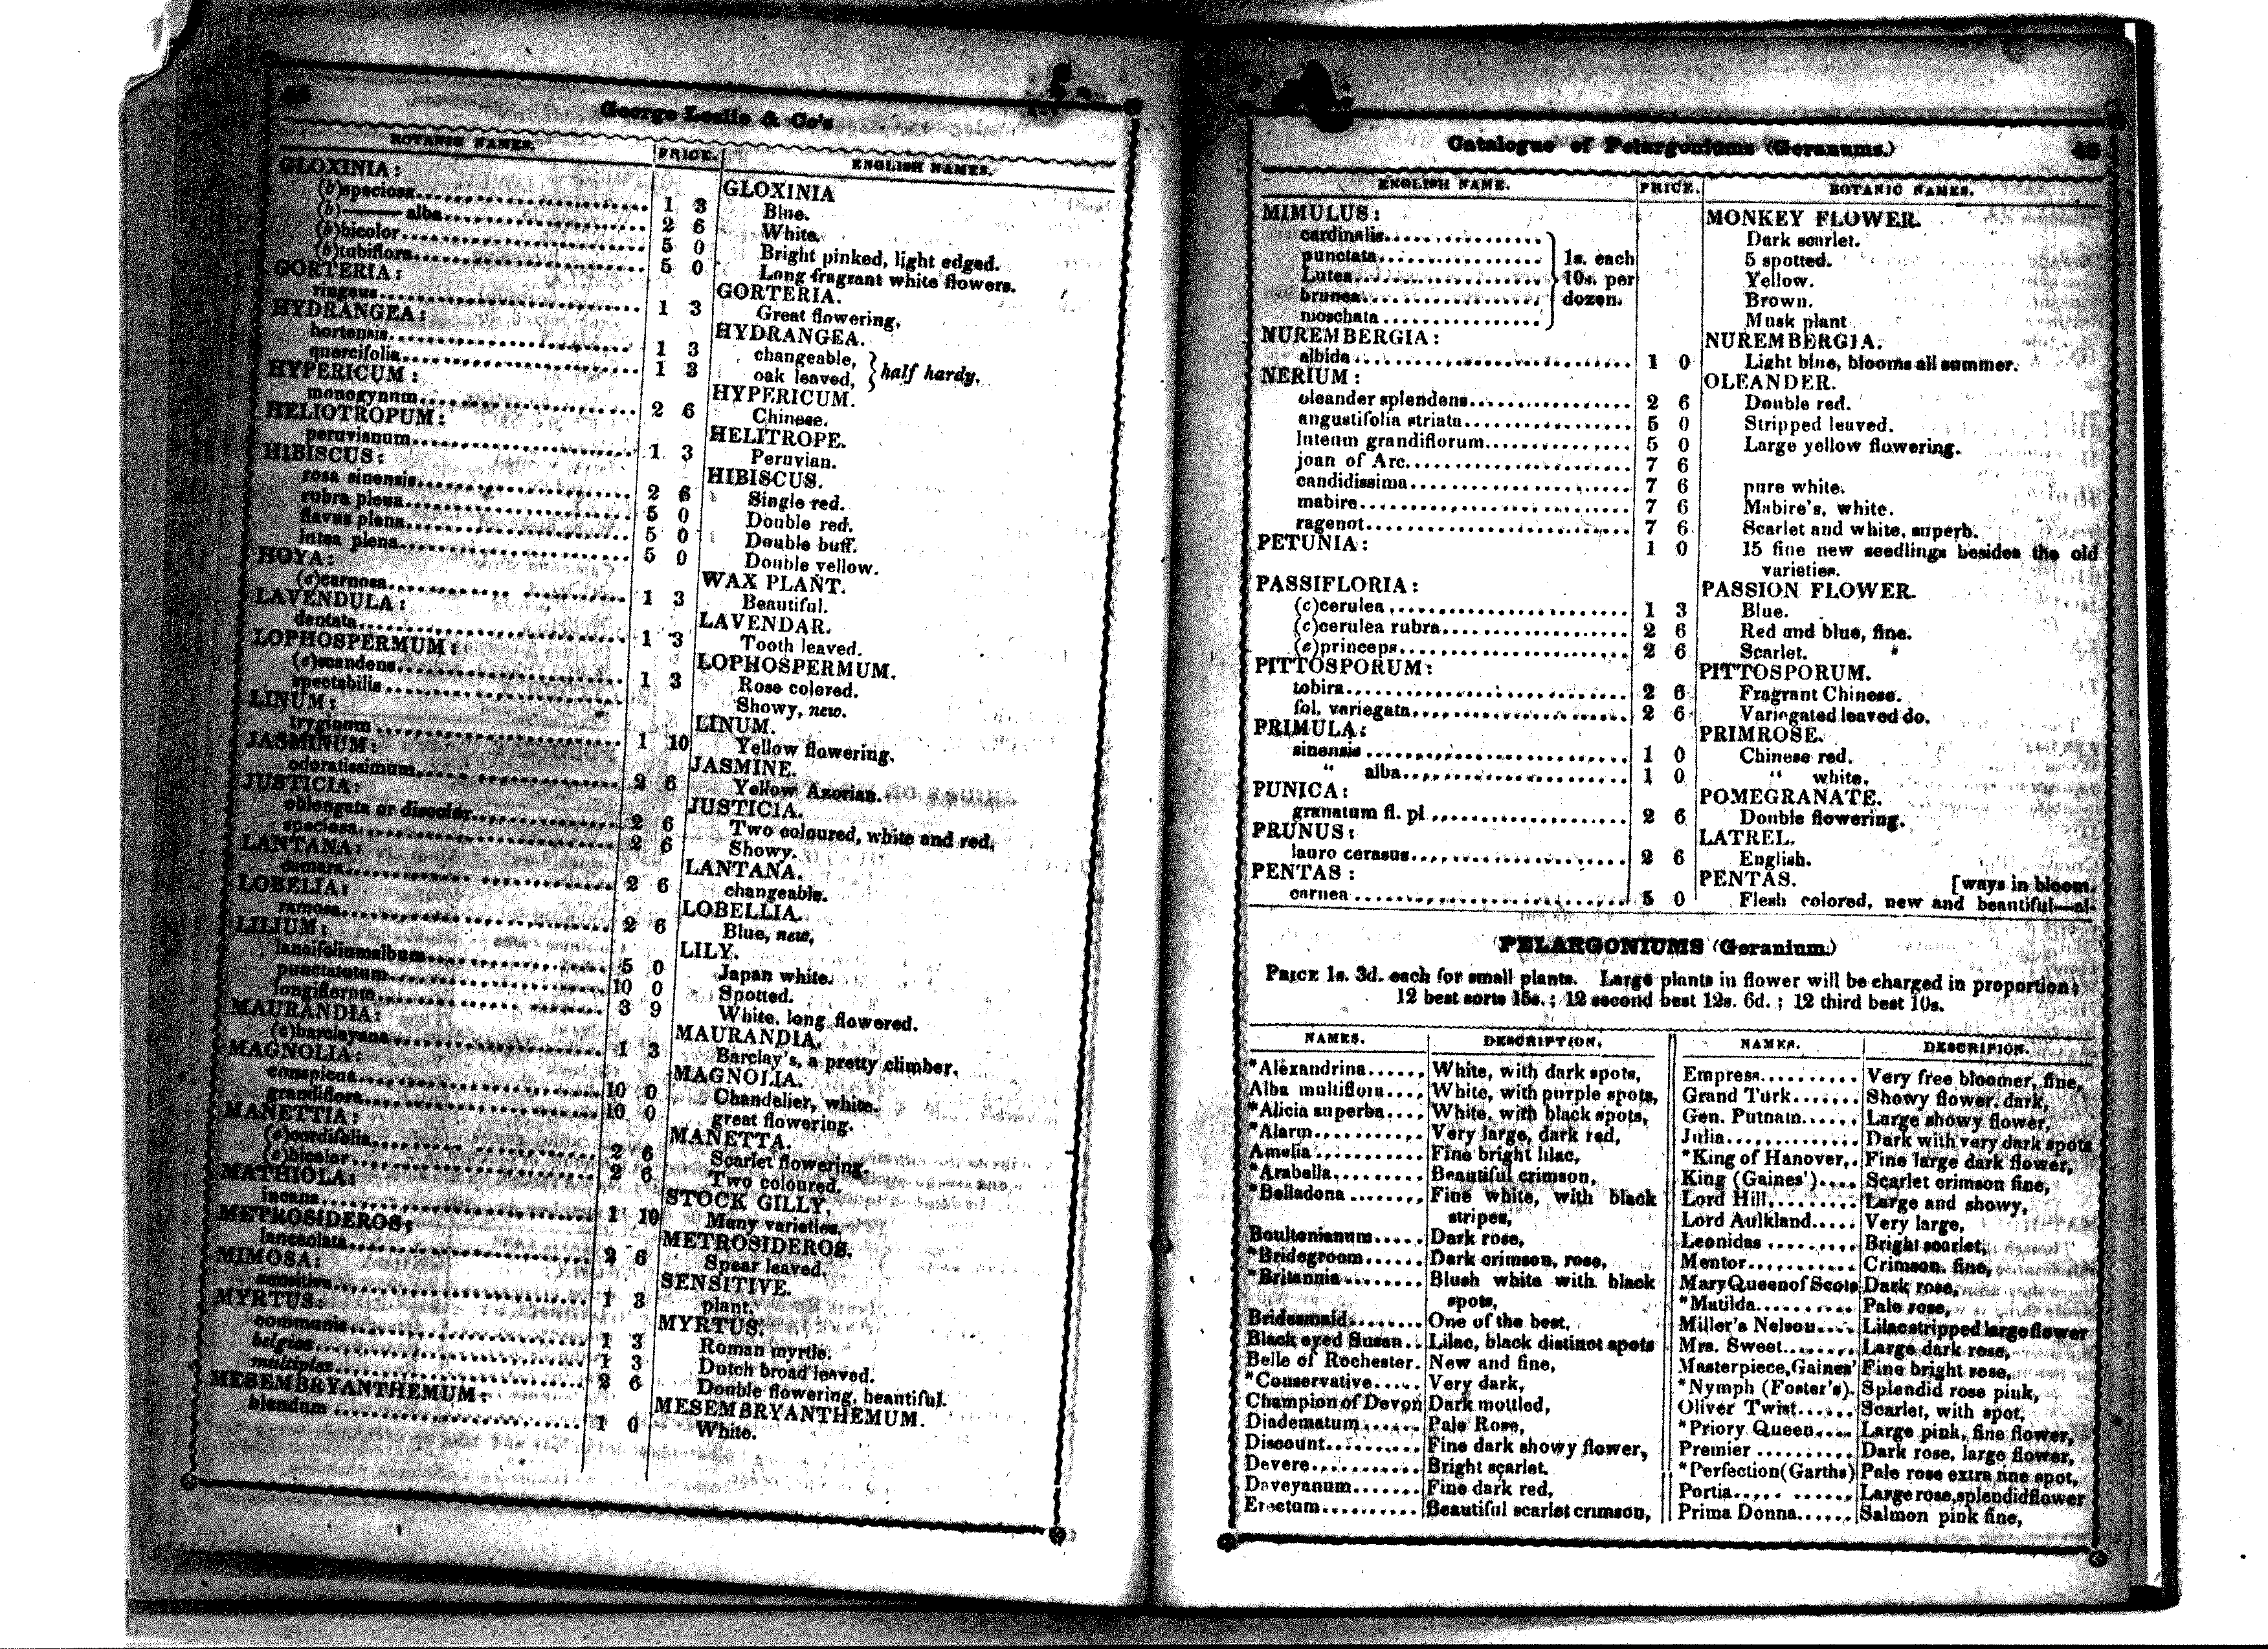 George Leslie & Co's
BOTANIC NAMES. PRICE. ENGLISH NAMES.
GLOXINIA: GLOXINIA
(b)speciosa 1 3 Blue.
(b)—— alba 2 6 White.
(b)bicolor 5 0 Bright pinked, light edged.
(b)tubiflora 5 0 Long fragrant white flowers.
GORTERIA: GORTERIA.
ringens 1 3 Great flowering,
HYDRANGEA: HYDRANGEA.
hortensis 1 3 changeable, } half hardy.
quercifolia 1 3 oak leaved,
HYPERICUM: HYPERICUM.
monogynum 2 6 Chinese.
HELIOTROPUM: HELITROPE.
peruvianum 1 3 Peruvian.
HIBISCUS: HIBISCUS.
rosa sinensis 2 6 Single red.
rubra plena 5 0 Double red.
flavus plena 5 0 Double buff.
lutea plena 5 0 Double yellow.
HOYA: WAX PLANT.
(c)carnosa 1 3 Beautiful.
LAVENDULA: LAVENDAR.
dentata 1 3 Tooth leaved.
LOPHOSPERMUM: LOPHOSPERMUM.
(c)scandens 1 3 Rose colored.
spectabilis Showy, new.
LINUM: LINUM.
tryginum 1 10 Yellow flowering.
JASMINUM: JASMINE.
odoratissimum 2 6 Yellow Azorian.
JUSTICIA: JUSTICIA.
oblongata or discolor 2 6 Two coloured, white and red.
speciosa 2 6 Showy.
LANTANA: LANTANA.
camara 2 6 changeable.
LOBELIA: LOBELLIA.
ramosa 2 6 Blue, new,
LILIUM: LILY.
lancifoliumalbum 5 0 Japan white.
punctatutum 10 0 Spotted.
longiflorum 3 9 White, long flowered.
MAURANDIA: MAURANDIA.
(c)barclayana 1 3 Barclay's, a pretty climber.
MAGNOLIA: MAGNOLIA.
conspicua 10 0 Chandelier, white.
grandiflora 10 0 great flowering.
MANETTIA: MANETTA.
(c)cordifolia 2 6 Scarlet flowering.
(c)bicolor 2 6 Two coloured.
MATHIOLA: STOCK GILLY.
incana 1 10 Many varieties.
METROSIDEROS: METROSIDEROS.
lanceolata 2 6 Spear leaved.
MIMOSA: SENSITIVE.
sensitiva 1 3 plant.
MYRTUS: MYRTUS.
communis 1 3 Roman myrtle.
belgica 1 3 Dutch broad leaved.
multiplex 2 6 Double flowering, beautiful.
MESEMBRYANTHEMUM: MESEMBRYANTHEMUM.
blandum 1 0 White.
Catalogue of Pelargoniums (Geranums.) 45
ENGLISH NAME. PRICE. BOTANIC NAMES.
MIMULUS: MONKEY FLOWER.
cardinalis Dark scarlet.
punctata 1s. each 5 spotted.
Lutea 10s. per Yellow.
brunea dozen. Brown.
moschata Musk plant
NUREMBERGIA: NUREMBERGIA.
albida 1 0 Light blue, blooms all summer.
NERIUM: OLEANDER.
oleander splendens 2 6 Double red.
angustifolia striata 5 0 Stripped leaved.
luteum grandiflorum 5 0 Large yellow flowering.
joan of Arc 7 6
candidissima 7 6 pure white.
mabire 7 6 Mabire's, white.
ragenot 7 6 Scarlet and white, superb.
PETUNIA: 1 0 15 fine new seedlings besides the old
varieties.
PASSIFLORIA: PASSION FLOWER.
(c)cerulea 1 3 Blue.
(c)cerulea rubra 2 6 Red and blue, fine.
(c)princeps 2 6 Scarlet.
PITTOSPORUM: PITTOSPORUM.
tobira 2 6 Fragrant Chinese.
fol. variegata 2 6 Variegated leaved do.
PRIMULA: PRIMROSE.
sinensis 1 0 Chinese red.
" alba 1 0 " white.
PUNICA: POMEGRANATE.
granatum fl. pl 2 6 Double flowering.
PRUNUS: LATREL.
lauro cerasus 2 6 English.
PENTAS: PENTAS. [ways in bloom.
carnea 5 0 Flesh colored, new and beautiful—al-
PELARGONIUMS (Geranium.)
PRICE 1s. 3d. each for small plants. Large plants in flower will be charged in proportion;
12 best sorts 15s.; 12 second best 12s. 6d.; 12 third best 10s.
NAMES. DESCRIPTION. NAMES. DESCRIPION.
*Alexandrina White, with dark spots, Empress Very free bloomer, fine,
Alba multiflora White, with purple spots, Grand Turk Showy flower, dark,
*Alicia superba White, with black spots, Gen. Putnam Large showy flower,
*Alarm Very large, dark red, Julia Dark with very dark spots
Amelia Fine bright lilac, *King of Hanover, Fine large dark flower,
*Arabella Beautiful crimson, King (Gaines') Scarlet crimson fine,
*Belladona Fine white, with black Lord Hill Large and showy,
stripes, Lord Aulkland Very large,
Boultonianum Dark rose, Leonidas Bright scarlet,
*Bridegroom Dark crimson, rose, Mentor Crimson, fine,
*Britannia Blush white with black Mary Queen of Scots Dark rose,
spots, *Matilda Pale rose,
Bridesmaid One of the best, Miller's Nelson Lilac stripped large flower
Black eyed Susan Lilac, black distinct spots Mrs. Sweet Large dark rose,
Belle of Rochester. New and fine, Masterpiece, Gaines' Fine bright rose,
*Conservative Very dark, *Nymph (Foster's) Splendid rose pink,
Champion of Devon Dark mottled, Oliver Twist Scarlet, with spot,
Diadematum Pale Rose, *Priory Queen Large pink, fine flower,
Discount Fine dark showy flower, Premier Dark rose, large flower,
Devere Bright scarlet. *Perfection (Garths) Pale rose extra fine spot,
Daveyanum Fine dark red, Portia Large rose, splendid flower
Erectum Beautiful scarlet crimson, Prima Donna Salmon pink fine,